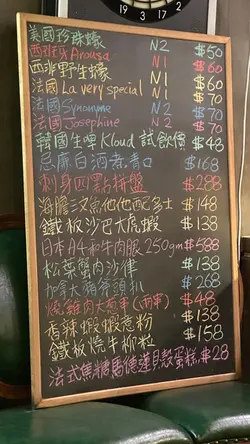 19 3 17
美國珍珠蠔 N2 $50
西班牙Arousa N1 $60
西非野生蠔 N1 $60
法國La very special N1 $70
法國Synonyme N2 $70
法國Josephine N2 $70
韓國生啤Kloud 試飲價 $48
忌廉白酒煮青口 $168
刺身四點拼盤 $288
海膽三文魚他他配多士 $148
鐵板沙巴大虎蝦 $148
日本A4和牛肉眼250gm $588
松葉蟹肉沙律 $138
加拿大貓爺頭扒 $268
燒雞肉大葱串(兩串) $48
香辣蝦蝦意粉 $138
鐵板燒牛柳粒 $158
法式焦糖馬德蓮貝殼蛋糕 $28